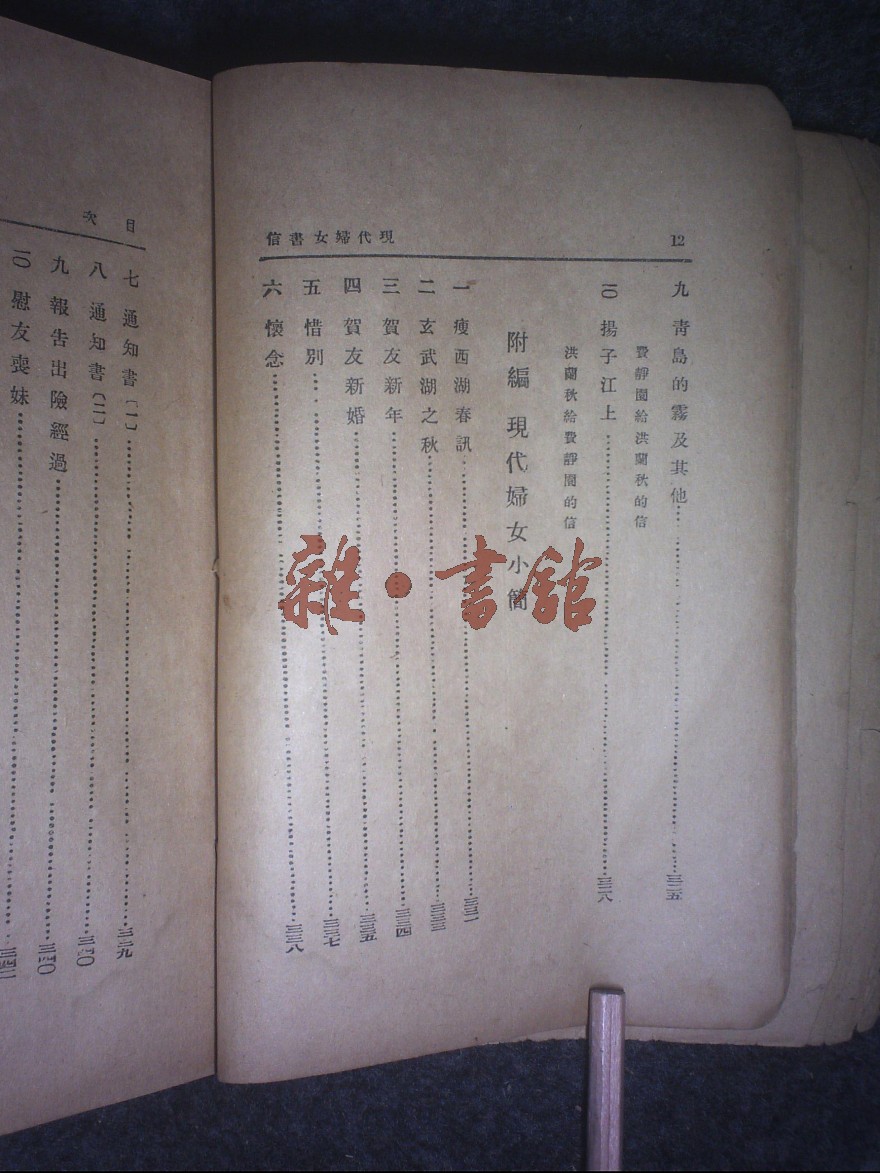 12
現代婦女書信
九 青島的霧及其他……三二五
費靜園給洪蘭秋的信
一〇 揚子江上……三二八
洪蘭秋給費靜園的信
附編 現代婦女小簡
一 瘦西湖春訊……三三二
二 玄武湖之秋……三三三
三 賀友新年……三三四
四 賀友新婚……三三五
五 惜別……三三七
六 懷念……三三八
目次
七 通知書(一)……三三九
八 通知書(二)……三四〇
九 報告出險經過……三四〇
一〇 慰友喪妹……
雜·書館